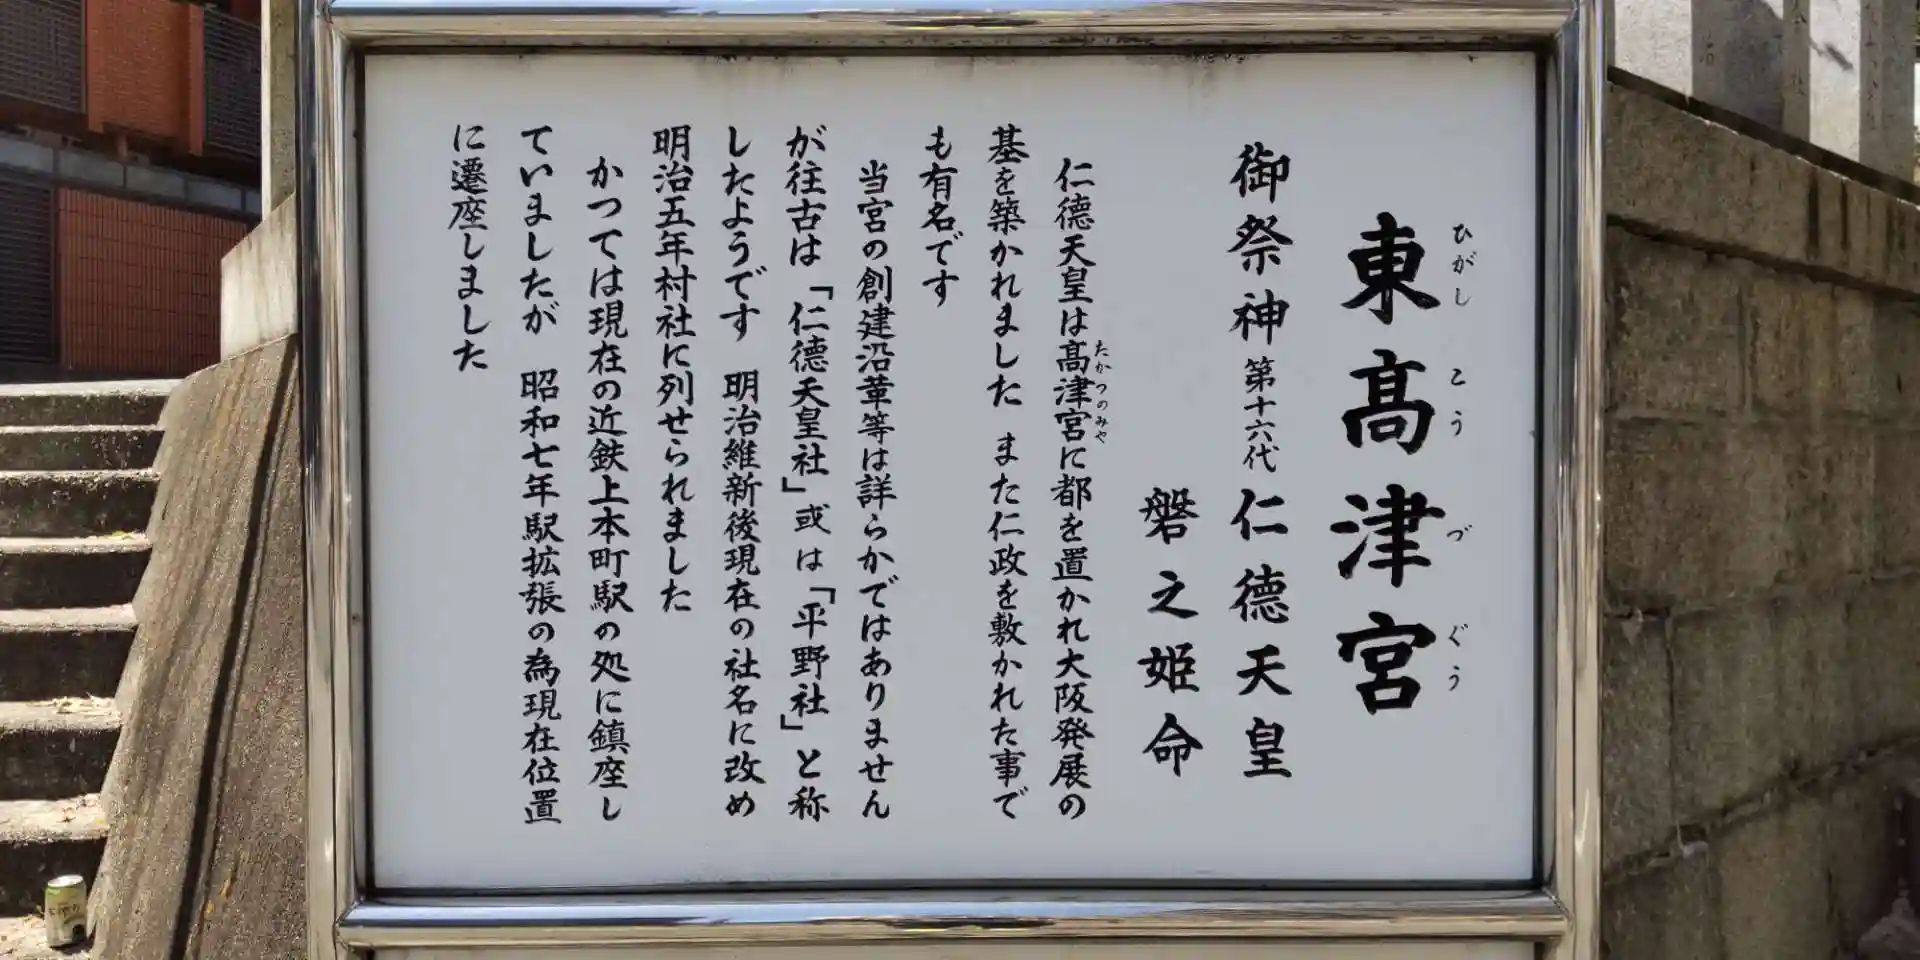 東髙津宮
ひがし こう づ ぐう
御祭神 第十六代 仁德天皇
磐之姫命
仁德天皇は髙津宮に都を置かれ大阪発展の
たかつのみや
基を築かれました また仁政を敷かれた事で
も有名です
当宮の創建沿革等は詳らかではありません
が往古は「仁德天皇社」或は「平野社」と称
したようです 明治維新後現在の社名に改め
明治五年村社に列せられました
かつては現在の近鉄上本町駅の処に鎮座し
ていましたが 昭和七年駅拡張の為現在位置
に遷座しました